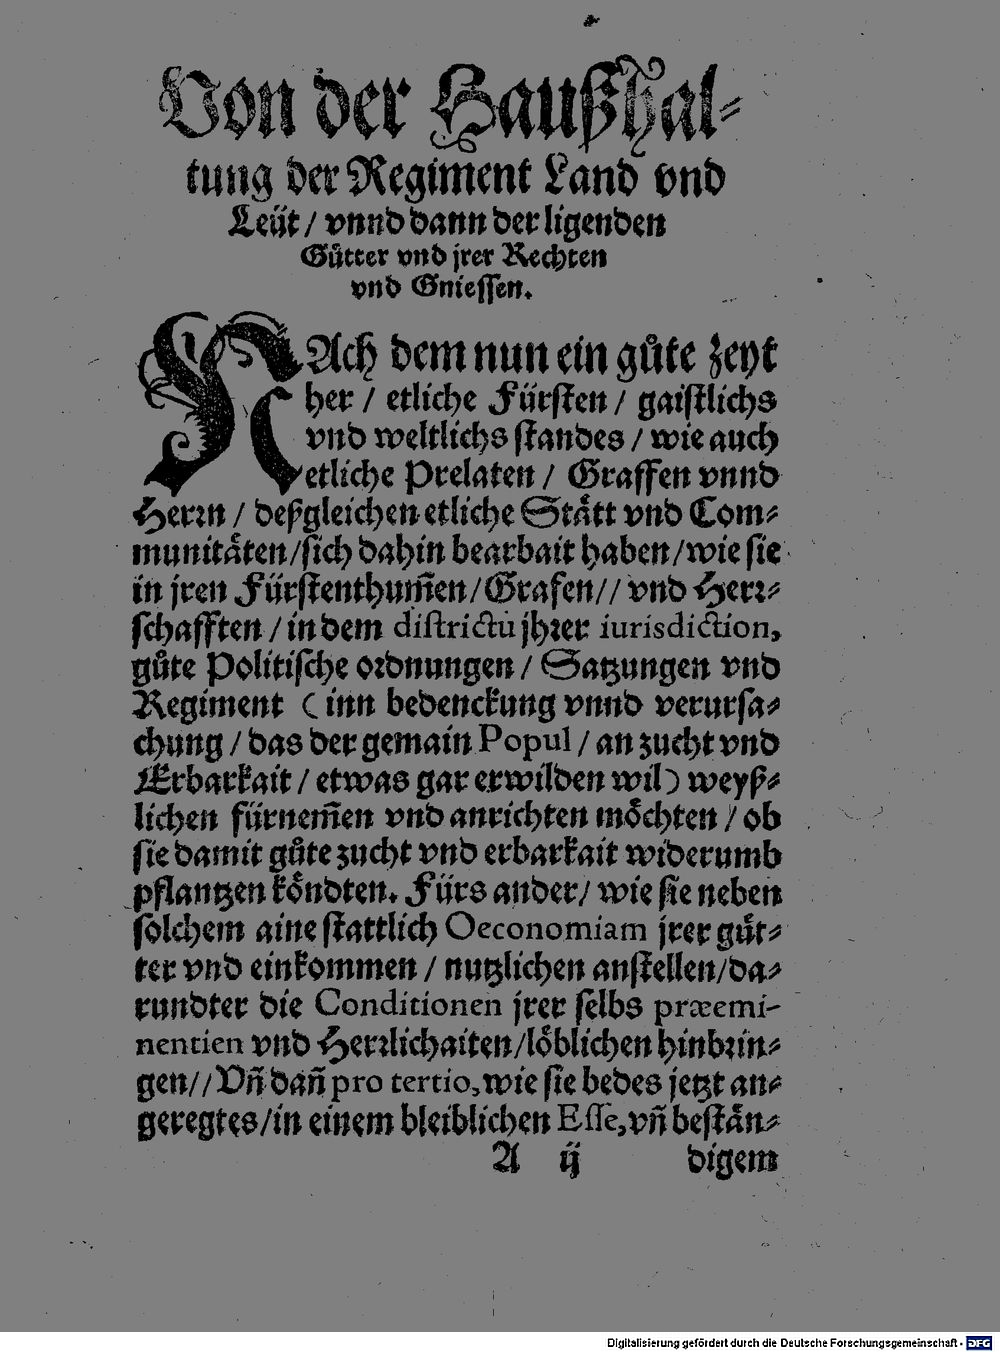 Von der Haußhal-
tung der Regiment Land vnd
Leüt / vnnd dann der ligenden
Gůtter vnd jrer Rechten
vnd Gniessen.
NAch dem nun ein gůte zeyt
her / etliche Fürsten / gaistlichs
vnd weltlichs standes / wie auch
etliche Prelaten / Graffen vnnd
Herrn / deßgleichen etliche Stått vnd Com-
munitåten / sich dahin bearbait haben / wie sie
in jren Fürstenthum̃en / Grafen // vnd Herr-
schafften / in dem districtu jhrer iurisdiction,
gůte Politische ordnungen / Satzungen vnd
Regiment (inn bedenckung vnnd verursa-
chung / das der gemain Popul / an zucht vnd
Erbarkait / etwas gar erwilden wil) weyß-
lichen fürnem̃en vnd anrichten möchten / ob
sie damit gůte zucht vnd erbarkait widerumb
pflantzen köndten. Fürs ander / wie sie neben
solchem aine stattlich Oeconomiam jrer gůt-
ter vnd einkommen / nutzlichen anstellen / da-
rundter die Conditionen jrer selbs præemi-
nentien vnd Herrlichaiten / löblichen hinbrin-
gen // Vñ dañ pro tertio, wie sie bedes jetzt an-
geregtes / in einem bleiblichen Esse, vñ bestån-
A ij digem
Digitalisierung gefördert durch die Deutsche Forschungsgemeinschaft - DFG